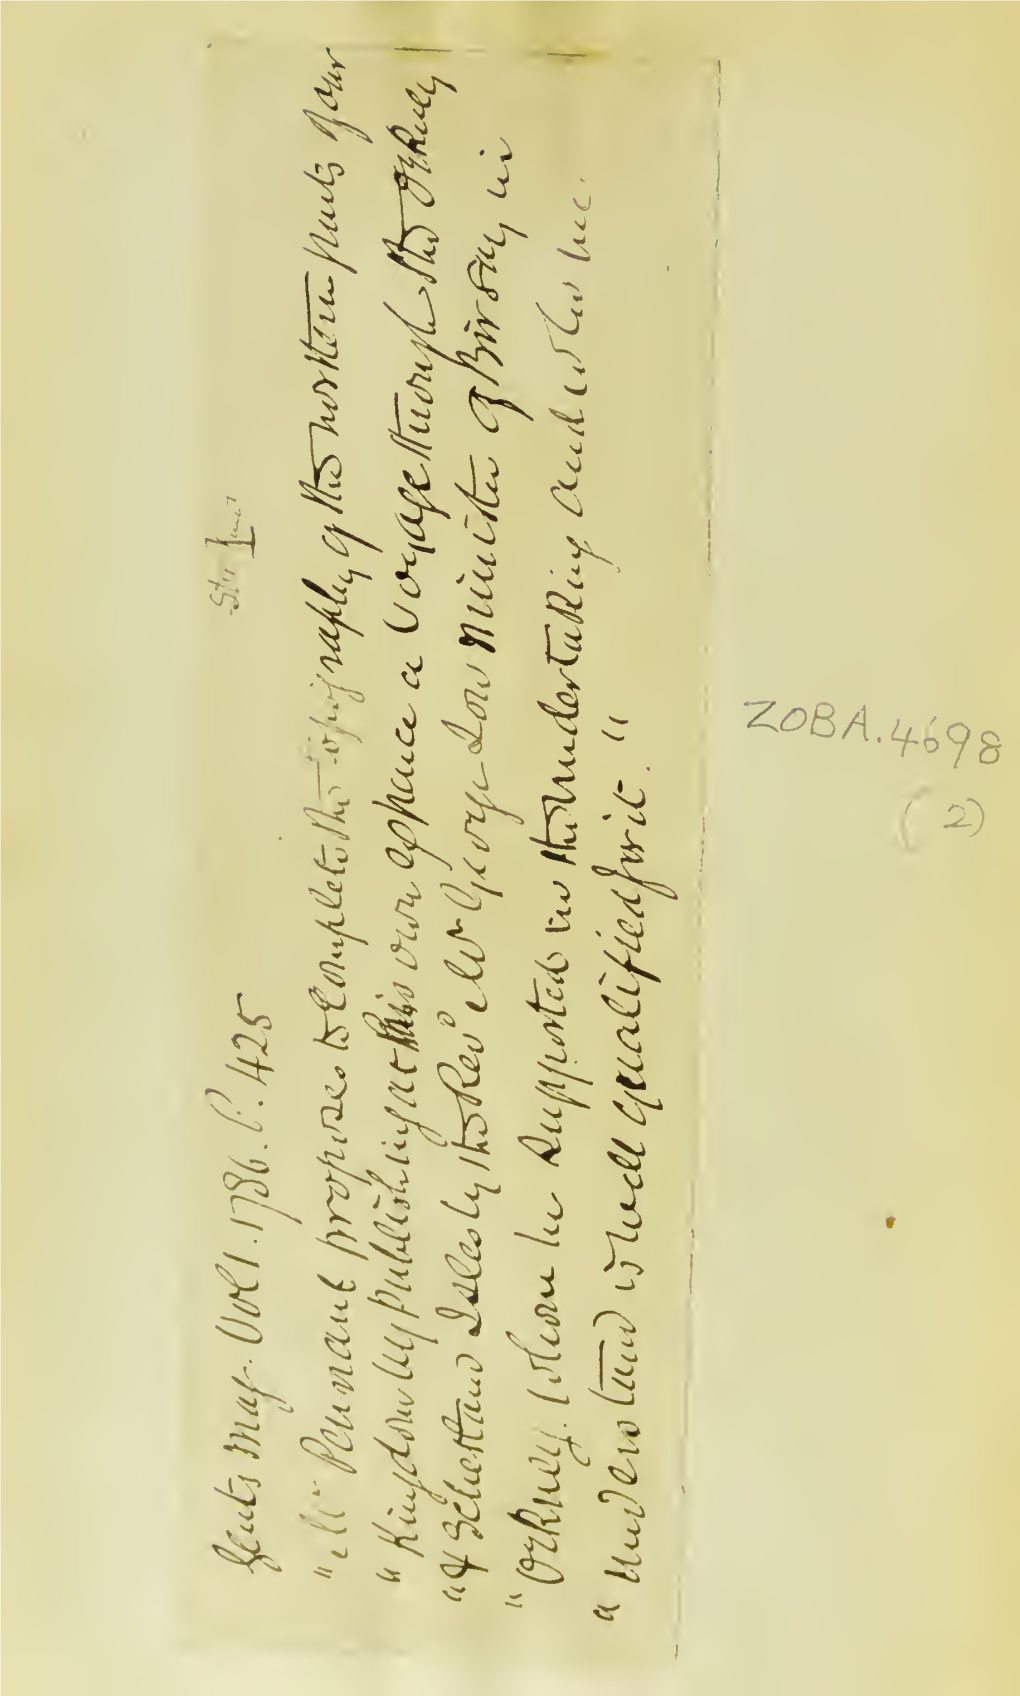 Gents Mag. Vol 1. 1786. P. 425
"Mr Pennant proposes to complete the topography of the northern parts of our
"Kingdom by publishing at his own expence a Voyage through the Orkney
"& Schetland Isles by the Revd Mr George Low Minister of Birsay in
"Orkney. whom he supported in the undertaking and who we
"understand is well qualified for it."
ZOBA.4698
(2)